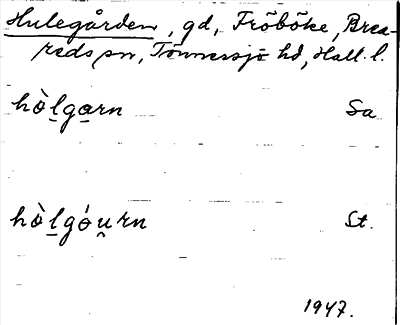 Hulegården, gd, Fröböke, Brea-
reds sn, Tönnersjö hd, Hall. l.
hò̲lga̲rn Sa
hò̲lgóu̯rn St.
1947.